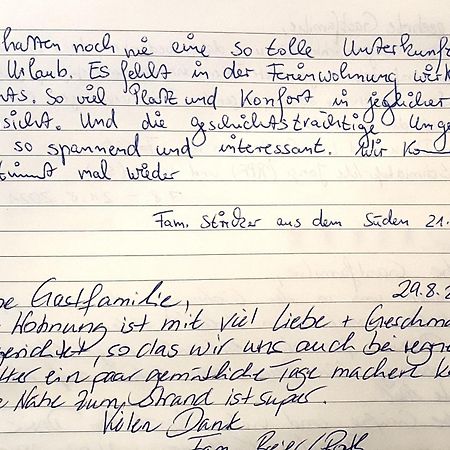 hatten noch nie eine so tolle Unterkunf
Urlaub. Es fehlt in der Ferienwohnung wirk
ts. So viel Platz und Komfort in jeglicher
sicht. Und die geschichtsträchtige Umge
so spannend und interessant. Wir Ko
timmt mal wieder
Fam. Stricker aus dem Süden 21.
be Gastfamilie, 29.8.2
Wohnung ist mit viel Liebe + Geschma
gerichtet, so das wir uns auch bei regne
ein paar gemütliche Tage machen k
e Nähe zum Strand ist super.
Vielen Dank
Fam.